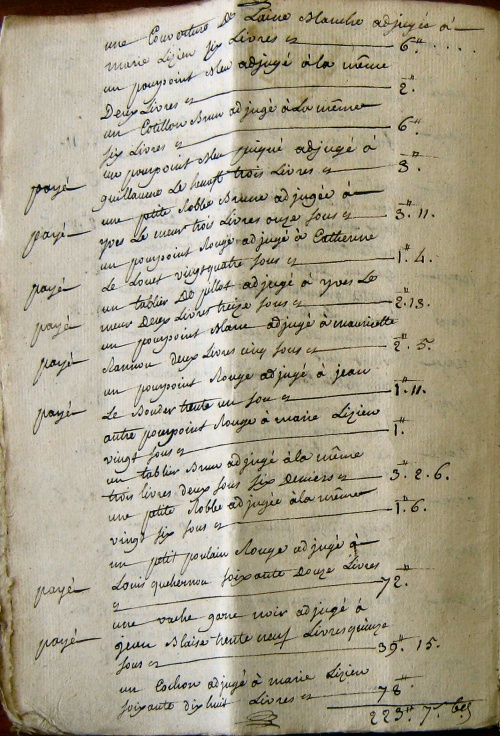 une Couverture De Laine Blanche adjugée à
marie Lizien six Livres cy 6.
un pourpoint Bleu adjugé à la même
Deux Livres cy 2.
un Cotillon Brun adjugé à La même
six Livres cy 6.
un pourpoint Bleu piqué adjugé à
payé guillaume Le trois Livres cy 3.
une ptite Robbe Brune adjugée à
payé yves Le meur trois Livres onze sous cy 3. 11.
un pourpoint Rouge adjugé à Catherine
payé Le Louet vingt quatre sous cy 1. 4.
un tablier De adjugé à yves Le
payé meur Deux Livres treize sous cy 2. 13.
un pourpoint adjugé à mauricette
payé deux Livres cinq sous cy 2. 5.
un pourpoint Rouge adjugé à jean
payé Le trente un sou cy 1. 11.
autre pourpoint Rouge à marie Lizien
vingt sous cy 1.
un tablier Brun adjugé à la même
trois livres deux sous six Deniers cy 3. 2. 6.
une petite Robbe adjugée à la même
vingt six sous cy 1. 6.
un petit poulain Rouge adjugé à
payé Louis soixante Douze Livres
cy 72.
une vache gare noir adjugé à
payé jean Blaise trente neuf Livres quinze
sous cy 39. 15.
un Cochon adjugé à marie Lizien
soixante dix huit Livres cy 78.
223. 7. 6